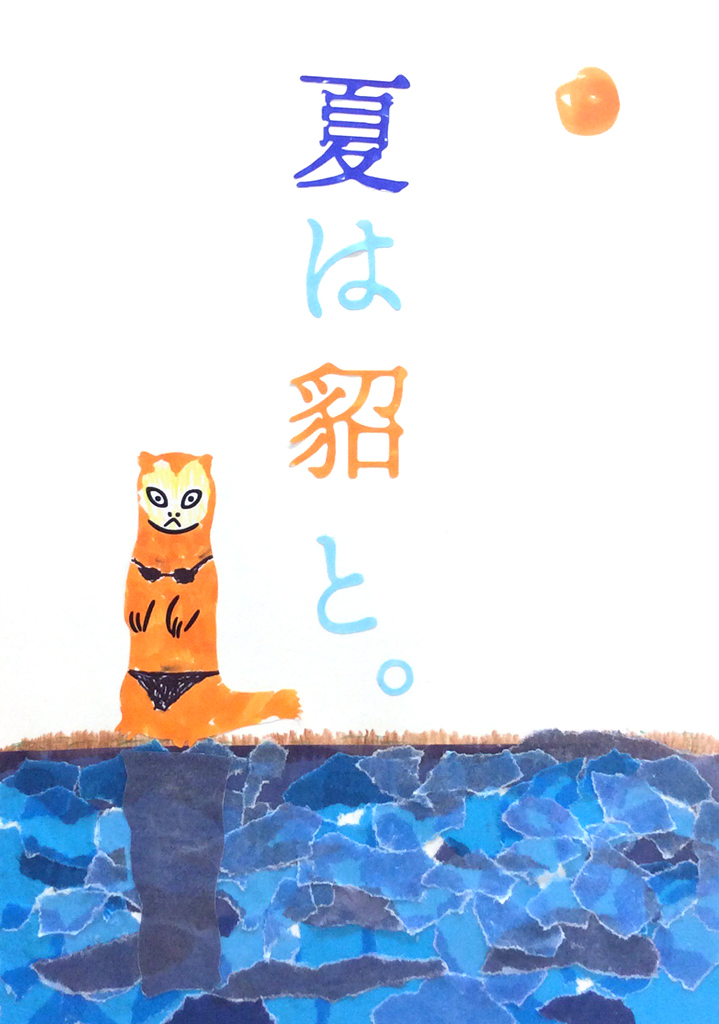 夏は貂と。